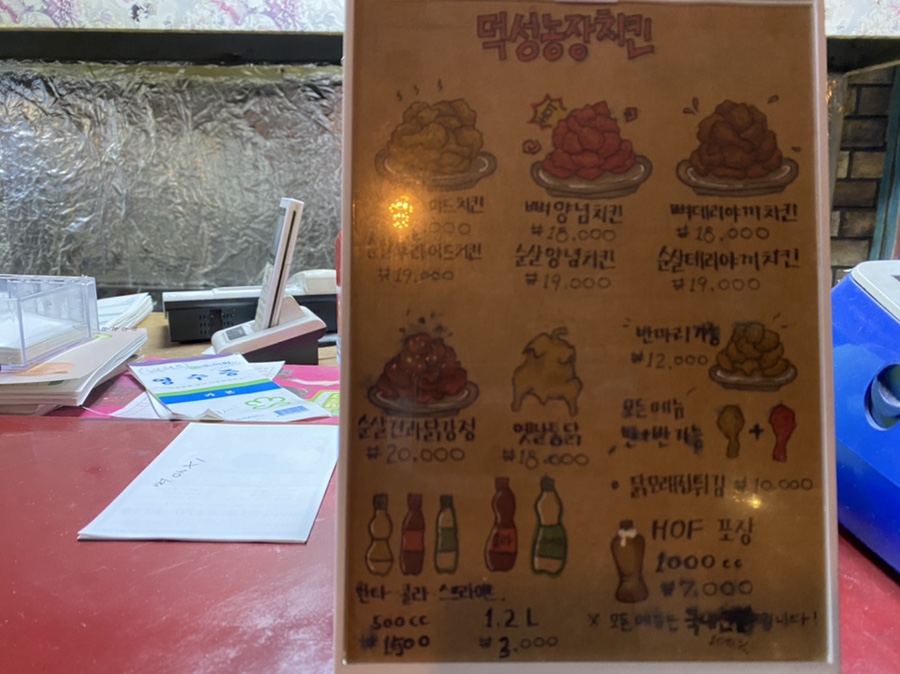 먹성농장치킨
뼈양념치킨
₩18,000
순살양념치킨
₩19,000
뼈데리야끼치킨
₩18,000
순살테리야끼치킨
₩19,000
순살후라이드치킨
₩19,000
HOT
반마리가능
₩12,000
모든메뉴
반+반가능
+
순살견과닭강정
₩20,000
옛날통닭
₩18,000
• 닭모래집튀김 ₩10,000
환타 콜라 스프라이트.
500cc
₩1500
1.2L
₩3,000
HOF 포장
1000cc
₩7,000
※ 모든메뉴는
100%
영수증